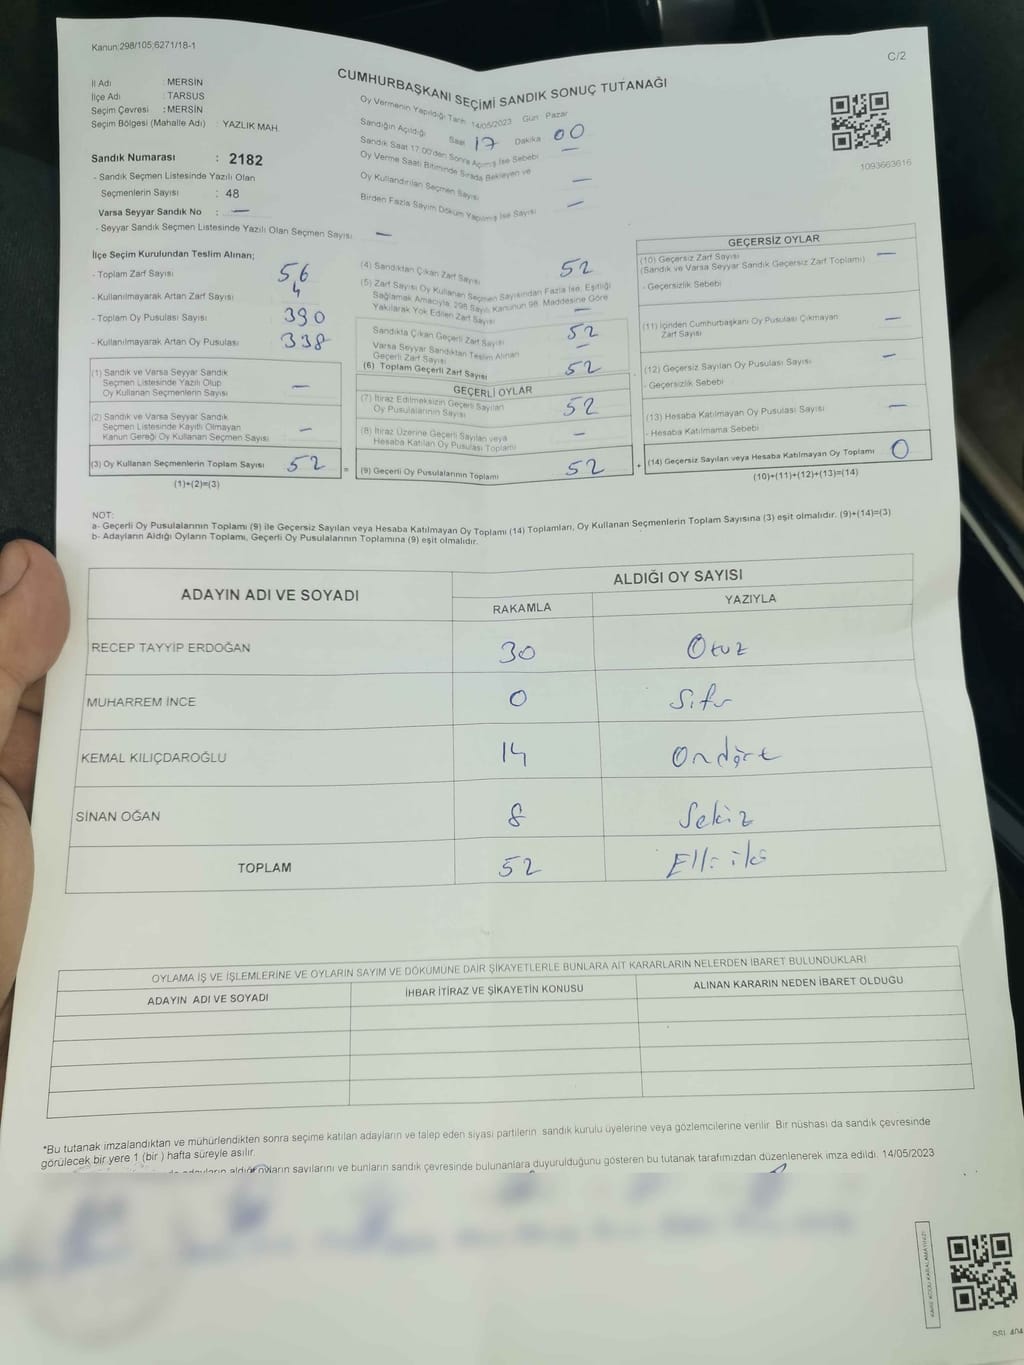 Kanun:298/105;6271/18-1
C/2
CUMHURBAŞKANI SEÇİMİ SANDIK SONUÇ TUTANAĞI
İl Adı : MERSİN
İlçe Adı : TARSUS
Seçim Çevresi : MERSİN
Seçim Bölgesi (Mahalle Adı) : YAZLIK MAH.
Sandık Numarası : 2182
- Sandık Seçmen Listesinde Yazılı Olan
Seçmenlerin Sayısı : 48
Varsa Seyyar Sandık No : —
- Seyyar Sandık Seçmen Listesinde Yazılı Olan Seçmen Sayısı —
Oy Vermenin Yapıldığı Tarih 14/05/2023 Gün : Pazar
Sandığın Açıldığı Saat 17 Dakika 00
Sandık Saat 17.00'den Sonra Açılmış İse Sebebi —
Oy Verme Saati Bitiminde Sırada Bekleyen ve
Oy Kullandırılan Seçmen Sayısı —
Birden Fazla Sayım Döküm Yapılmış İse Sayısı —
1093663616
İlçe Seçim Kurulundan Teslim Alınan;
- Toplam Zarf Sayısı 56
- Kullanılmayarak Artan Zarf Sayısı 4
- Toplam Oy Pusulası Sayısı 390
- Kullanılmayarak Artan Oy Pusulası 338
(1) Sandık ve Varsa Seyyar Sandık
Seçmen Listesinde Yazılı Olup
Oy Kullanan Seçmenlerin Sayısı —
(2) Sandık ve Varsa Seyyar Sandık
Seçmen Listesinde Kayıtlı Olmayan
Kanun Gereği Oy Kullanan Seçmen Sayısı —
(3) Oy Kullanan Seçmenlerin Toplam Sayısı 52
(1)+(2)=(3)
(4) Sandıktan Çıkan Zarf Sayısı 52
(5) Zarf Sayısı Oy Kullanan Seçmen Sayısından Fazla İse, Eşitliği
Sağlamak Amacıyla, 298 Sayılı Kanunun 98. Maddesine Göre
Yakılarak Yok Edilen Zarf Sayısı —
Sandıkta Çıkan Geçerli Zarf Sayısı 52
Varsa Seyyar Sandıktan Teslim Alınan
Geçerli Zarf Sayısı —
(6) Toplam Geçerli Zarf Sayısı 52
GEÇERLİ OYLAR
(7) İtiraz Edilmeksizin Geçerli Sayılan
Oy Pusulalarının Sayısı 52
(8) İtiraz Üzerine Geçerli Sayılan veya
Hesaba Katılan Oy Pusulası Toplamı —
= (9) Geçerli Oy Pusulalarının Toplamı 52
GEÇERSİZ OYLAR
(10) Geçersiz Zarf Sayısı
(Sandık ve Varsa Seyyar Sandık Geçersiz Zarf Toplamı) —
- Geçersizlik Sebebi
(11) İçinden Cumhurbaşkanı Oy Pusulası Çıkmayan
Zarf Sayısı —
(12) Geçersiz Sayılan Oy Pusulası Sayısı —
- Geçersizlik Sebebi
(13) Hesaba Katılmayan Oy Pusulası Sayısı —
- Hesaba Katılmama Sebebi
+ (14) Geçersiz Sayılan veya Hesaba Katılmayan Oy Toplamı 0
(10)+(11)+(12)+(13)=(14)
NOT:
a- Geçerli Oy Pusulalarının Toplamı (9) ile Geçersiz Sayılan veya Hesaba Katılmayan Oy Toplamı (14) Toplamları, Oy Kullanan Seçmenlerin Toplam Sayısına (3) eşit olmalıdır. (9)+(14)=(3)
b- Adayların Aldığı Oyların Toplamı, Geçerli Oy Pusulalarının Toplamına (9) eşit olmalıdır.
ADAYIN ADI VE SOYADI
ALDIĞI OY SAYISI
RAKAMLA YAZIYLA
RECEP TAYYİP ERDOĞAN 30 Otuz
MUHARREM İNCE 0 Sıfır
KEMAL KILIÇDAROĞLU 14 Ondört
SİNAN OĞAN 8 Sekiz
TOPLAM 52 Elli iki
OYLAMA İŞ VE İŞLEMLERİNE VE OYLARIN SAYIM VE DÖKÜMÜNE DAİR ŞİKAYETLERLE BUNLARA AİT KARARLARIN NELERDEN İBARET BULUNDUKLARI
ADAYIN ADI VE SOYADI
İHBAR İTİRAZ VE ŞİKAYETİN KONUSU
ALINAN KARARIN NEDEN İBARET OLDUĞU
*Bu tutanak imzalandıktan ve mühürlendikten sonra seçime katılan adayların ve talep eden siyasi partilerin sandık kurulu üyelerine veya gözlemcilerine verilir. Bir nüshası da sandık çevresinde
görülecek bir yere 1 (bir ) hafta süreyle asılır.
adayların aldığı oyların sayılarını ve bunların sandık çevresinde bulunanlara duyurulduğunu gösteren bu tutanak tarafımızdan düzenlenerek imza edildi. 14/05/2023
KARE KODU KARALAMAYINIZ!